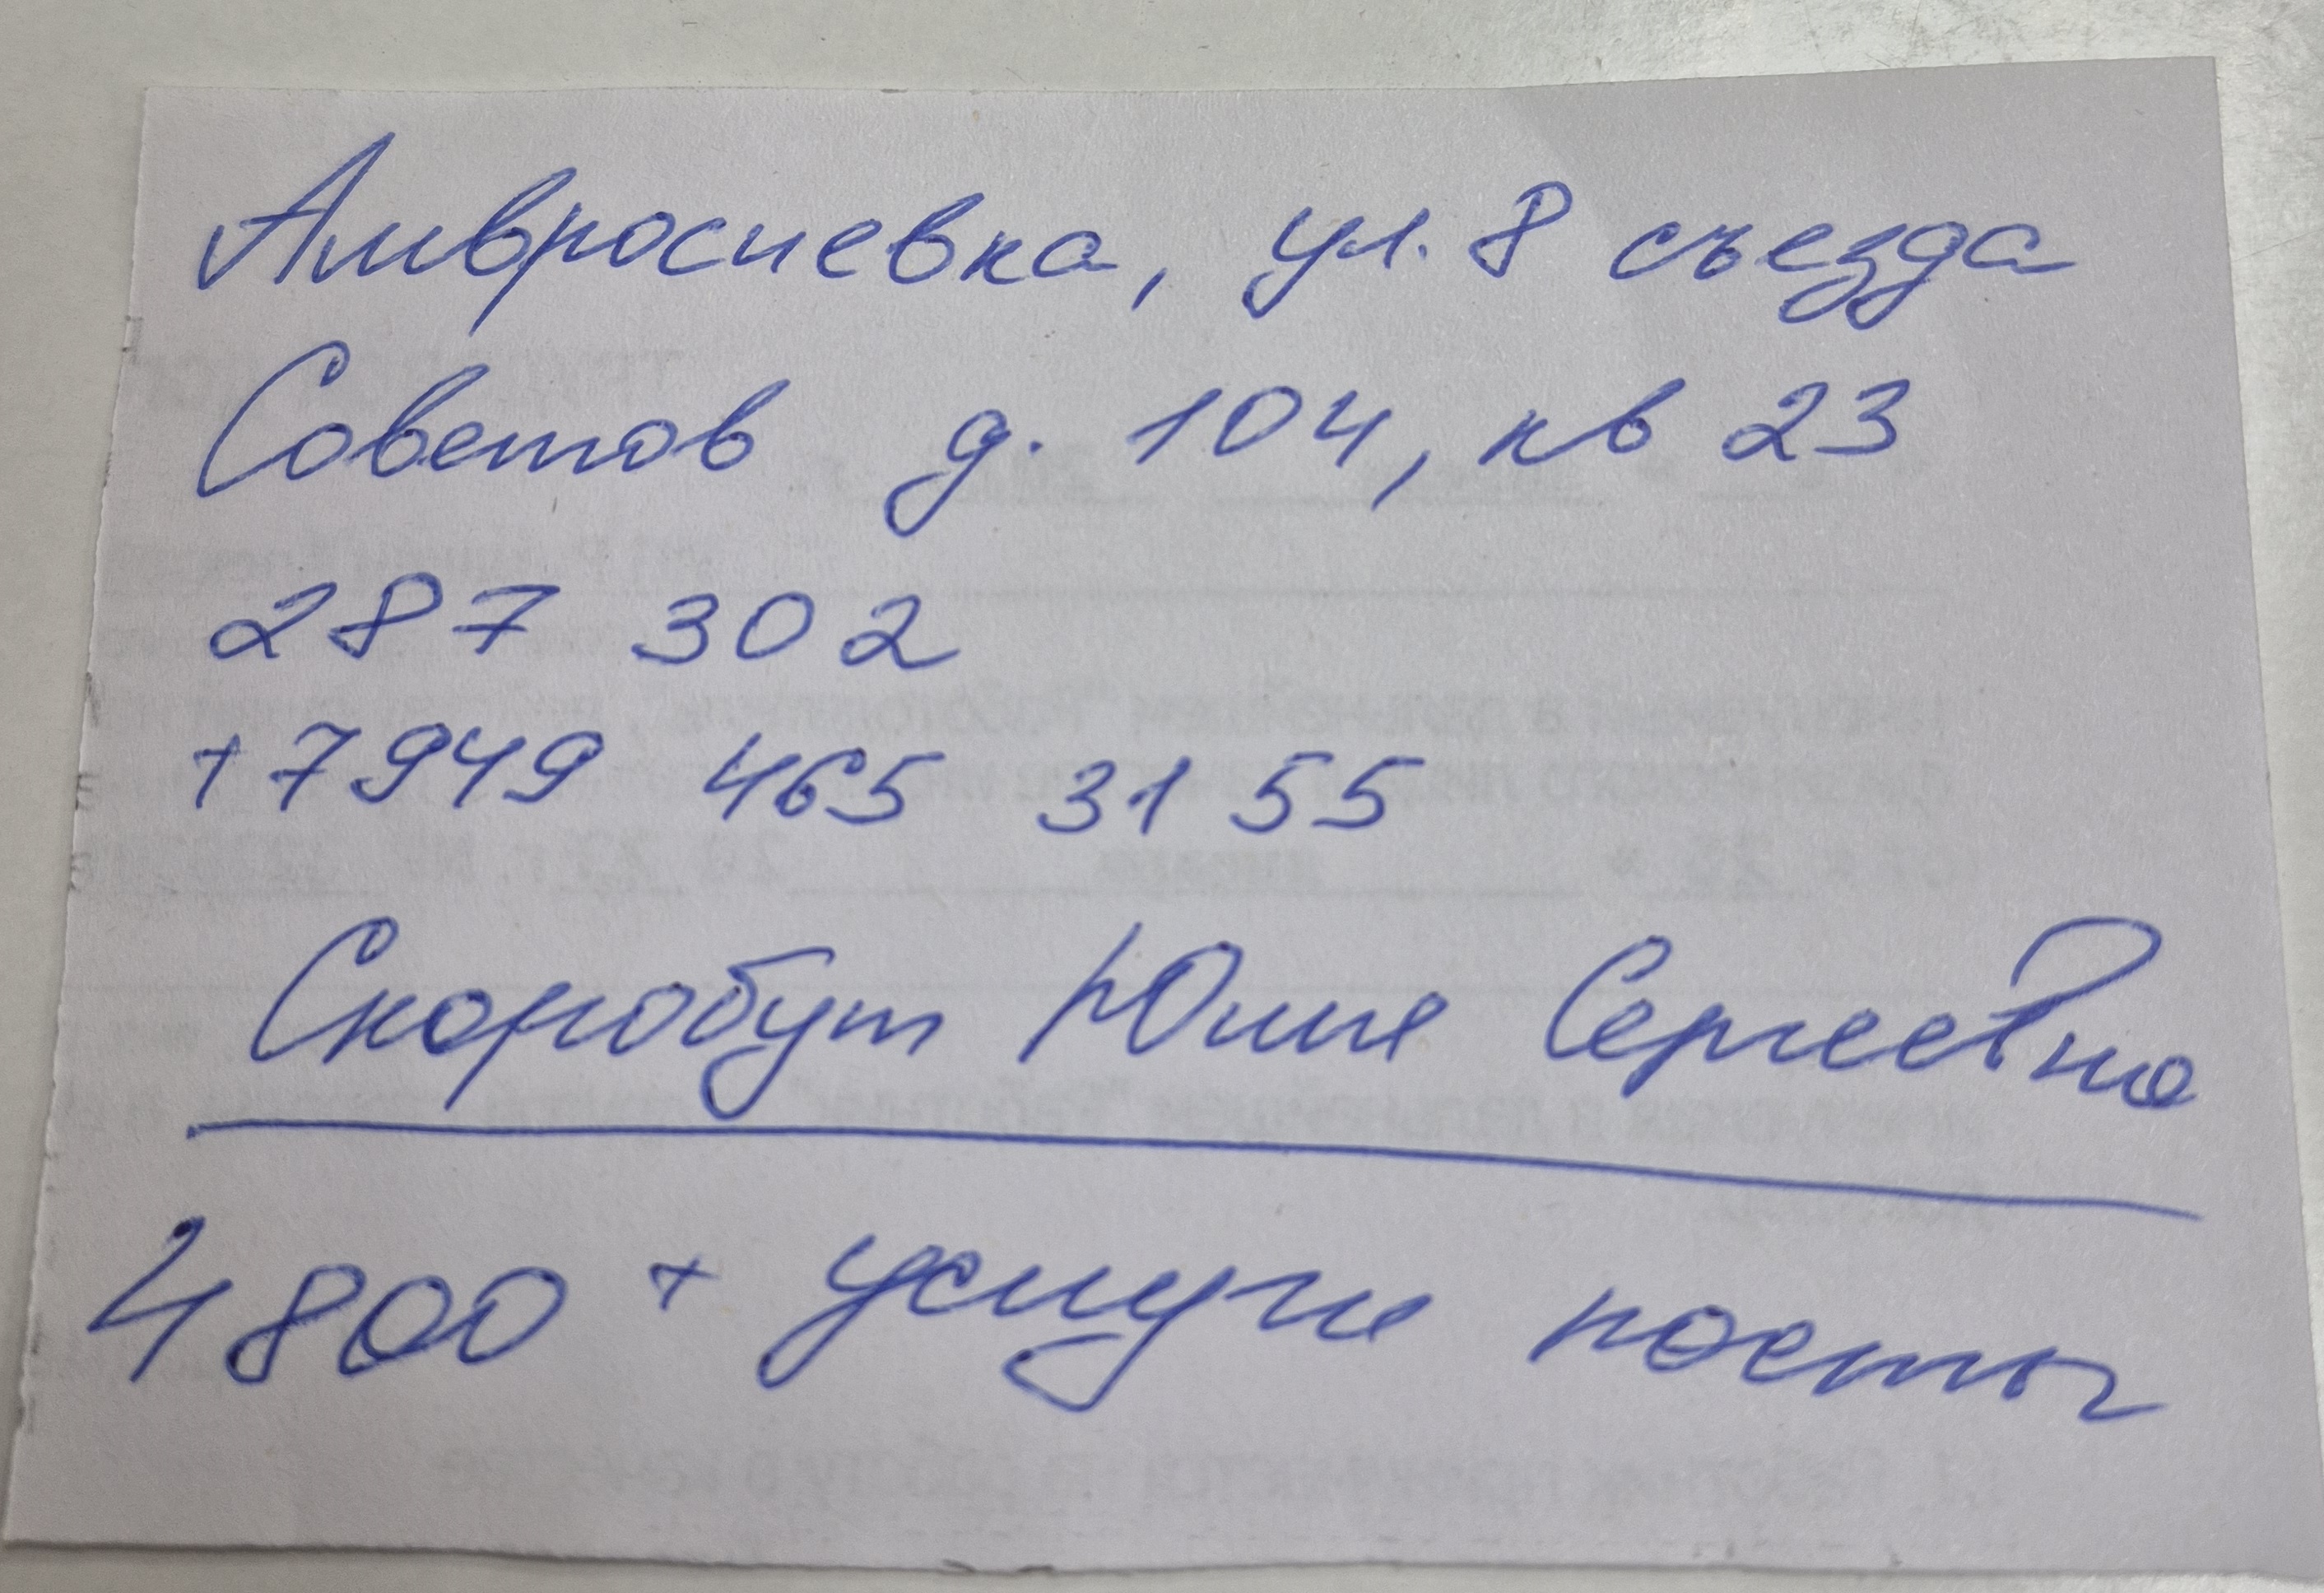 Амвросиевка, ул. 8 съезда
Советов д. 104, кв 23
287 302
+7949 465 31 55
Скоробут Юлия Сергеевна
4800 + услуги почты